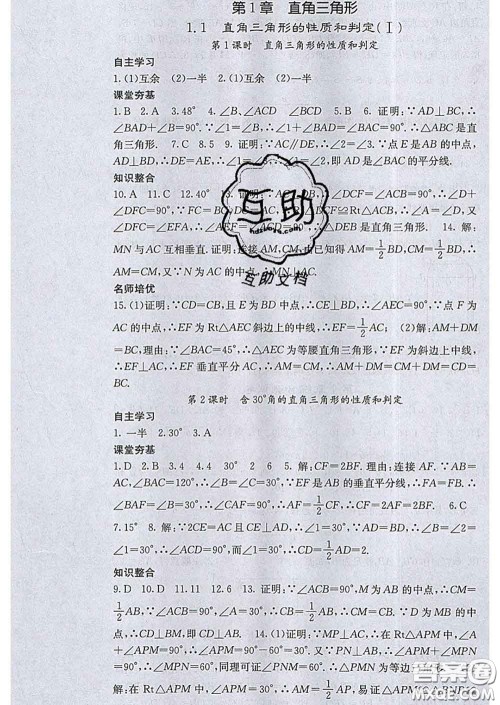 第1章 直角三角形
1.1 直角三角形的性质和判定(Ⅰ)
第1课时 直角三角形的性质和判定
自主学习
1.(1)互余 (2)一半 2.(1)互余 (2)一半
课堂夯基
1.B 2.A 3.48° 4.∠B、∠ACD ∠BCD 5.6 6.证明:∵AD⊥BC,∴
∠BAD+∠B=90°.∵∠1=∠B,∴∠1+∠BAD=∠BAC=90°.∴△ABC是直
角三角形. 7.C 8.5 9.证明:∵AC∥DE,∴∠2=∠3.∵点E为AB的中点,
AD⊥BD,∴DE=AE,∴∠1=∠3,∴∠1=∠2,即AD是∠BAC的平分线.
知识整合
10.A 11.C 12.40° 13.证明:
∠DFC=90°,∴∠FDC=∠ACB=90°,∴∠D+
∠DFC=90°,∵FC=
Rt△ABC,∴∠A=∠D,又
∵∠CMA=
90°,∴△DEB是直角三角形. 14.解:
MN与AC互相垂直.证明:连接AM,CM,由已知得AM=1/2BD,CM=1/2
BD,∴AM=CM,又∵N为AC的中点,∴MN⊥AC.
名师培优
15.(1)证明:∵CD=CB,且E为BD中点,∴CE⊥BD,∴∠AEC=90°,∵点F为
AC的中点,∴在Rt△AEC斜边AC上的中线,∴EF=1/2AC;(2)解:AM+DM
=BC,理由:∵∠BAC=45°,∴△AEC为等腰直角三角形,∵EF为斜边上中线,
∴EF⊥AC,∴EF垂直平分AC,∴AM=CM,∴AM+DM=CM+DM=CD=
BC.
第2课时 含30°角的直角三角形的性质和判定
自主学习
1.一半 2.30° 3.A
课堂夯基
1.D 2.B 3.4 4.30° 5.解:CF=2BF.理由:连接AF.∵AB=
AC,∠BAC=120°,∴∠B=∠C=30°,∵EF是AB的垂直平分线,∴FA=FB.∴
∠BAF=∠B=30°,∴∠FAC=90°,∴AF=1/2CF,∴CF=2AF=2BF. 6.C
7.15° 8.解:∵2CE=AC且CE⊥AD,∴∠1=30°,∵AD=BD,∴∠B=∠2=
1/2∠1=15°,∴∠ACD=90°,而∠1=30°,∴CD=1/2AD=2.
知识整合
9.D 10.D 11.11 12.6 13.证明:∵∠ACB=90°,M为AB的中点,∴CM=
1/2AB,∵∠ACB=90°,∠A=30°,∴CB=1/2AB,∴CM=CB.∵D为MB的中
点,∴CD⊥BM. 14.(1)证明:∵MP⊥AC,∴在Rt△APM中,∠APM=90°,
∴∠APN=90°-∠A=60°,∴∠MPN=180°-∠APM-
∠APN=60°,同理可证∠PNM=60°.∴△PMN为等边
解:在Rt△APM中,∠APM=30°,∴AM=1/2AP,易证△APM≌△BNP≌
互助
互助文档
答案圈
MXQE.COM